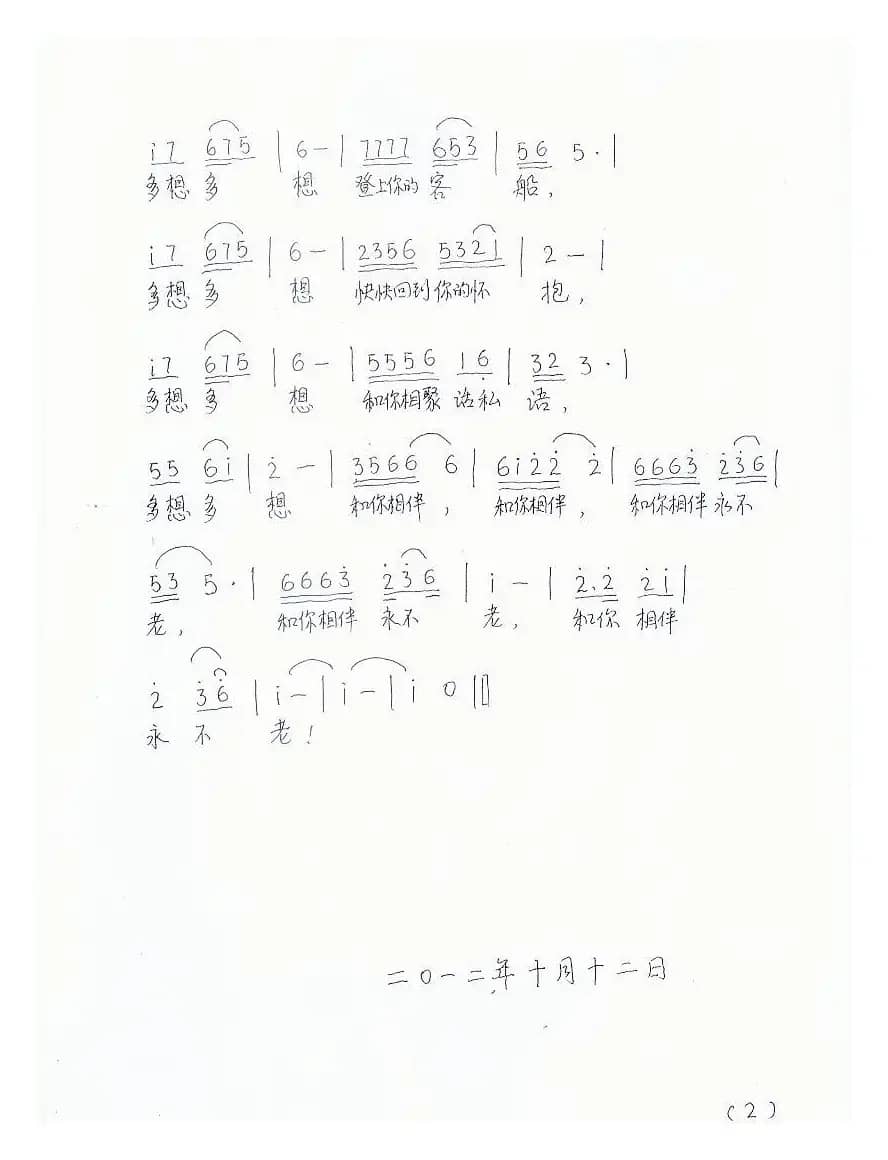 i7 675 | 6 - | 7777 653 | 56 5 · |
多想多 想 登上你的客 船，
i7 675 | 6 - | 2356 5321 | 2 - |
多想多 想 快快回到你的怀 抱，
i7 675 | 6 - | 5556 16̣ | 32 3 · |
多想多 想 和你相聚话私 语，
55 6i | 2̇ - | 3566 6 | 6i2̇2̇ 2̇ | 6663̇ 2̇3̇6 |
多想多 想 和你相伴， 和你相伴， 和你相伴永不
53 5 · | 6663̇ 2̇3̇6 | i - | 2̇.2̇ 2̇i |
老， 和你相伴 永不 老， 和你 相伴
2̇ 3̇6̇ | i - | i - | i 0 ‖
永 不 老！
二〇一二年十月十二日
（2）